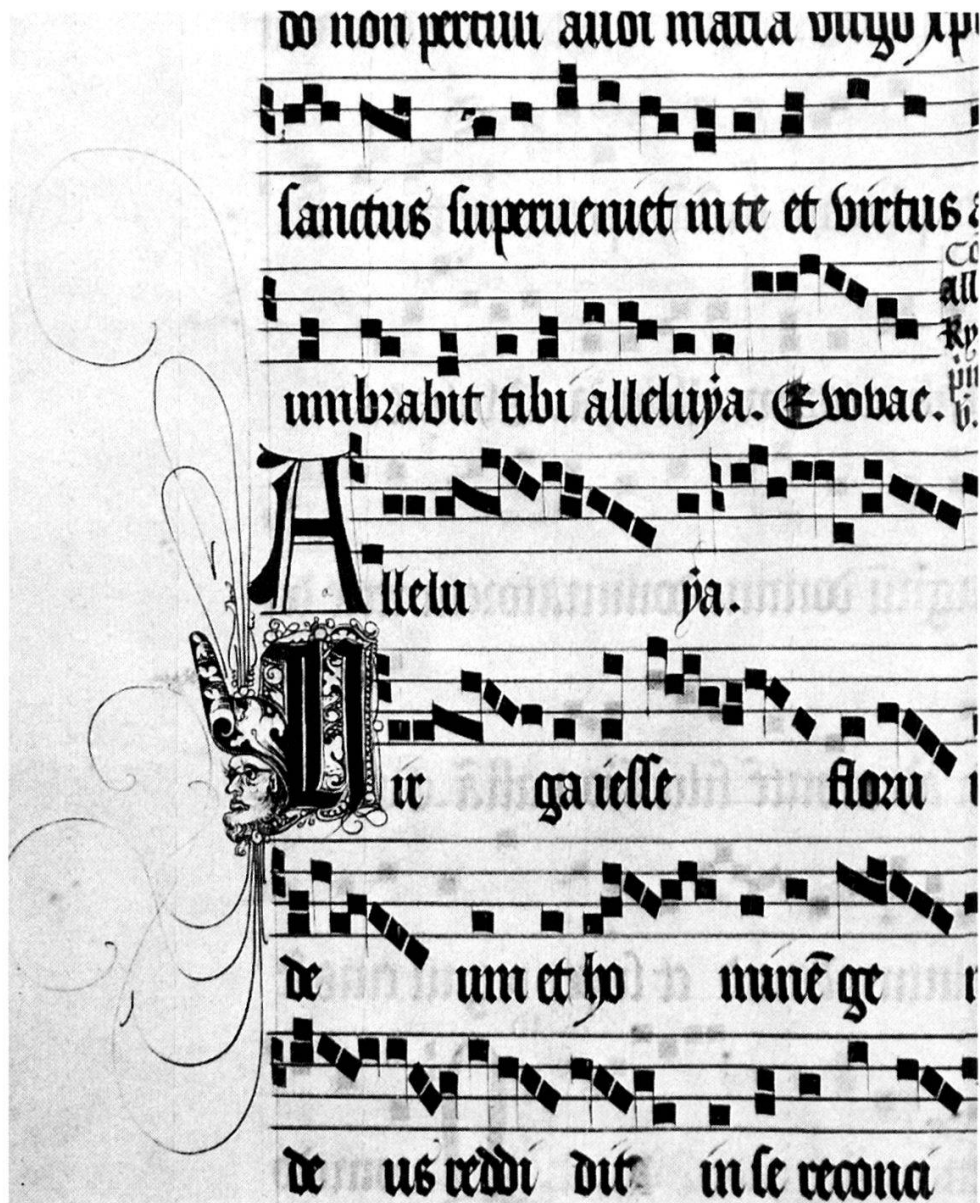 do non pertuli audi maria virgo xp̄i
sanctus superueniet in te et virtus a
umbrabit tibi alleluya. Euouae.
Co
all
Allelu ya.
Vir ga iesse floru
de um et ho minē ge
de us reddi dit in se reconci